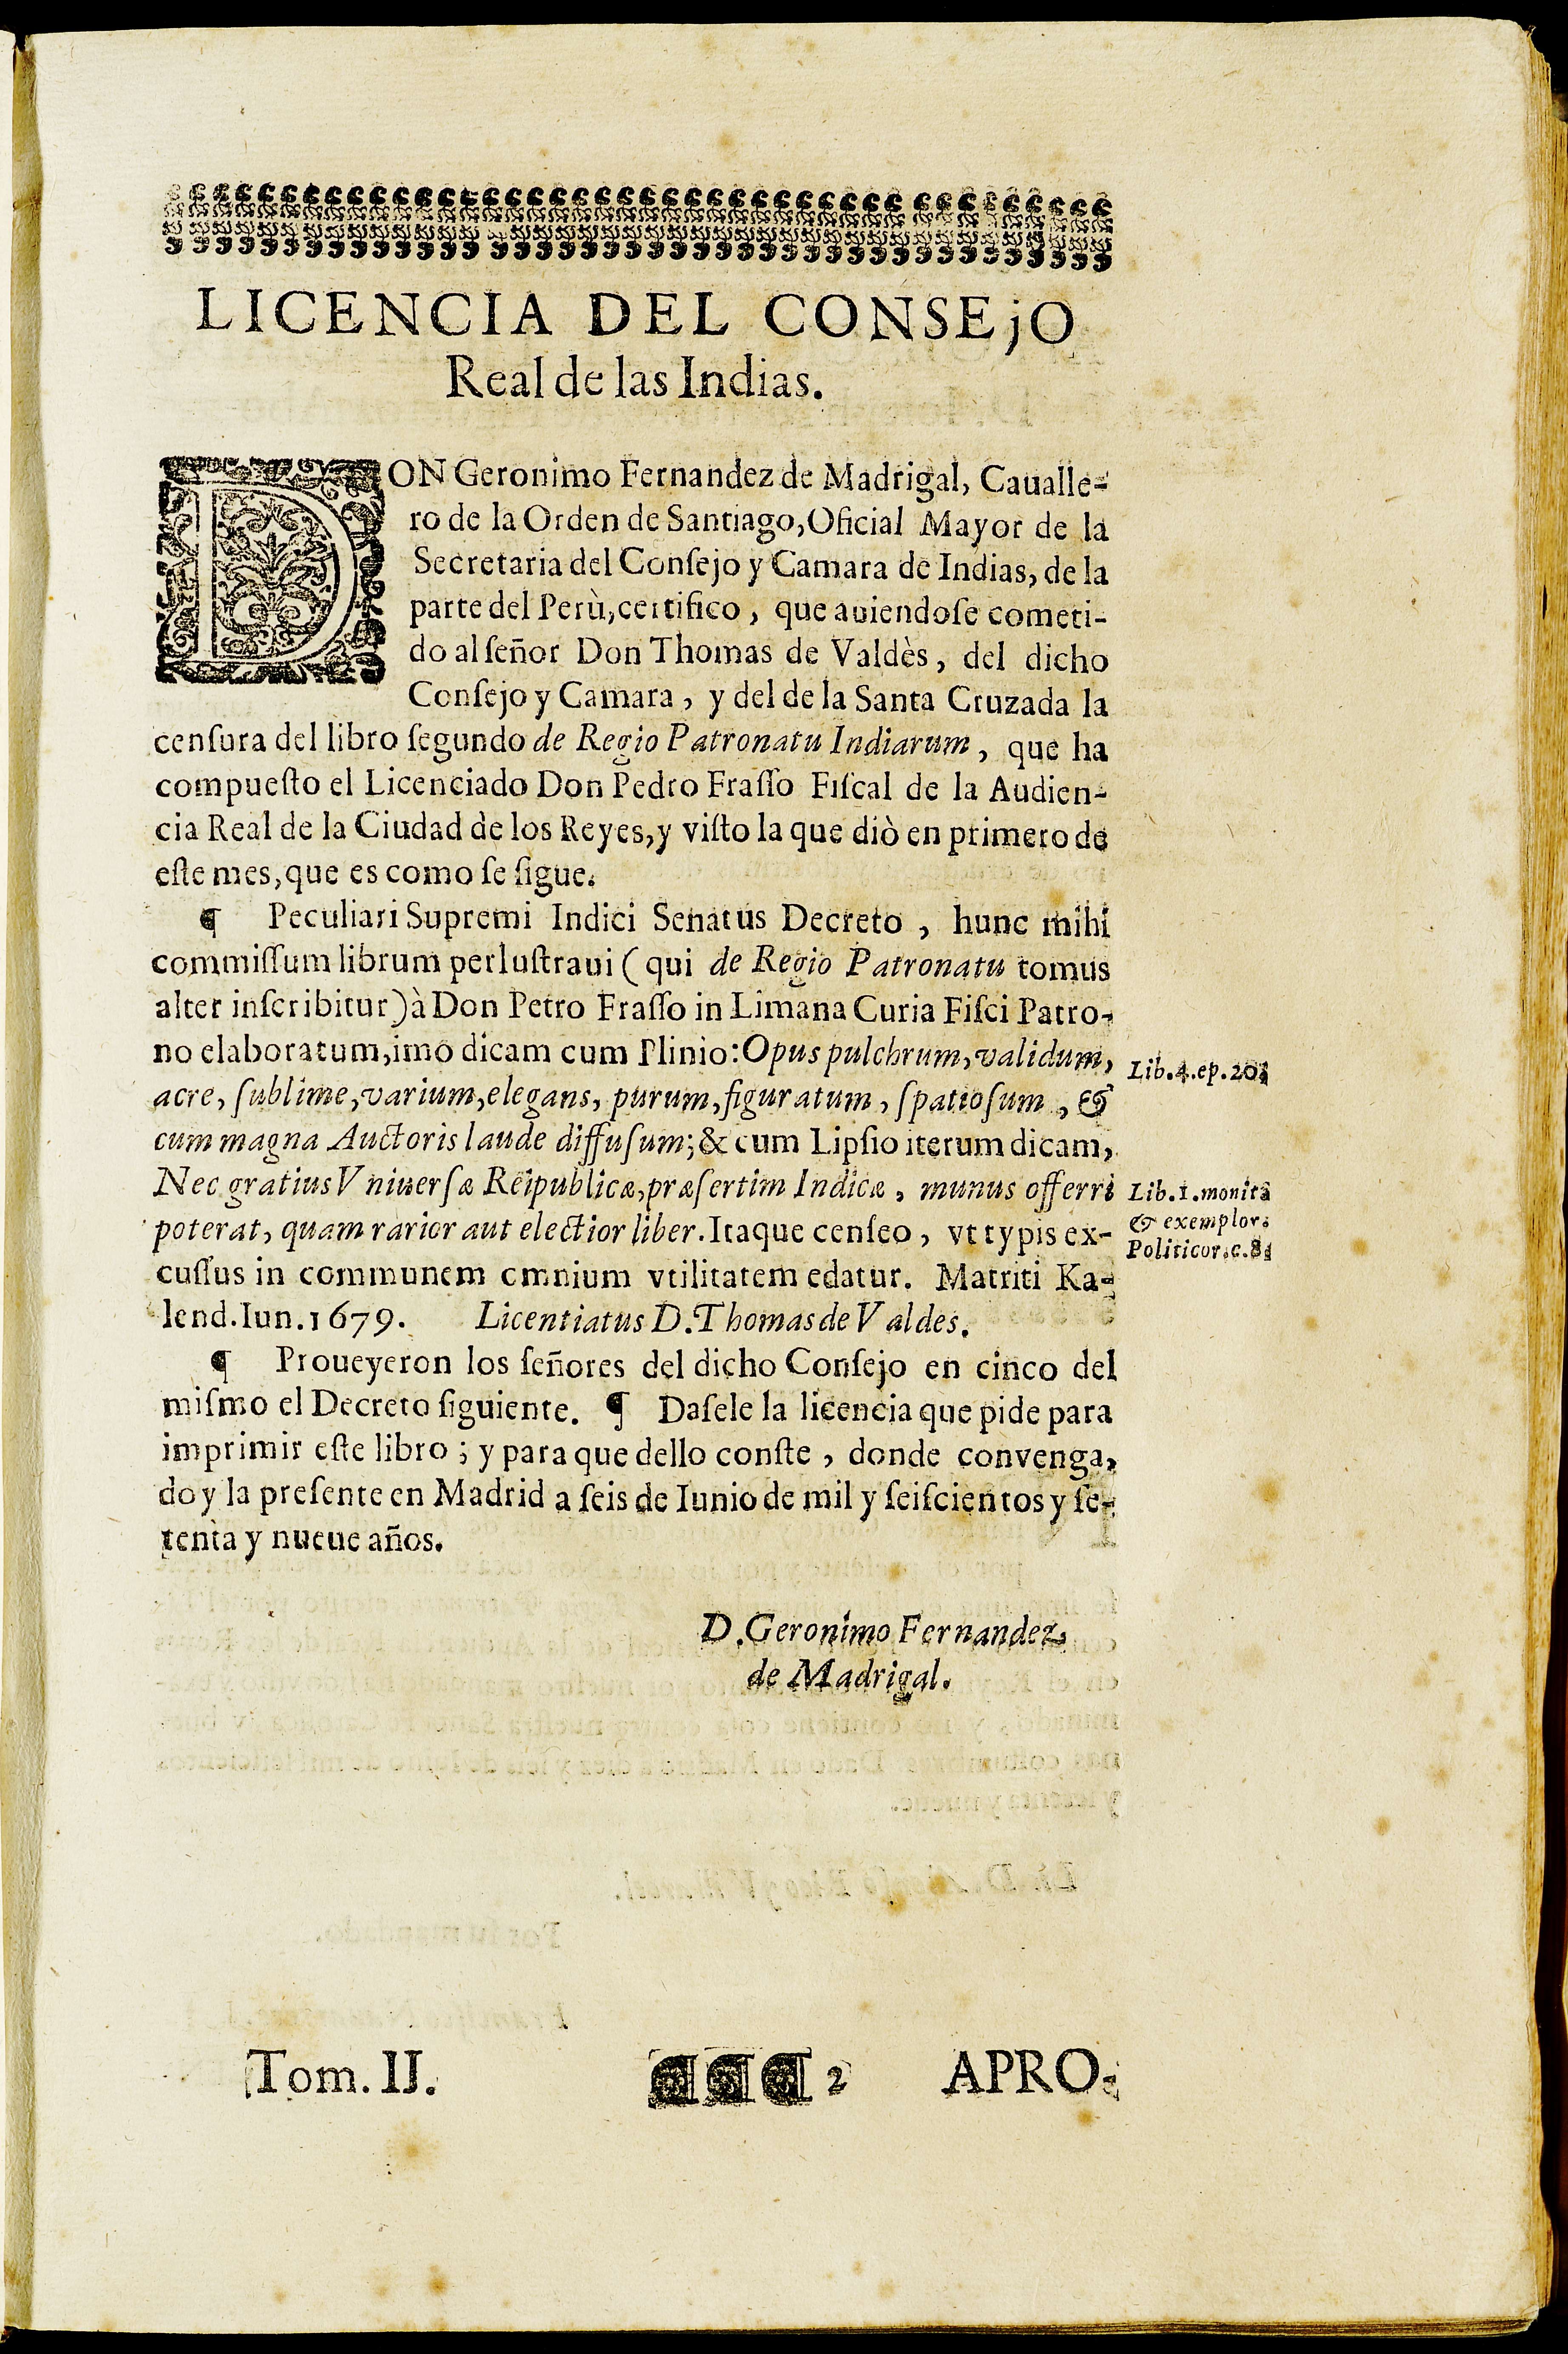 LICENCIA DEL CONSEjO
Real de las Indias.
DON Geronimo Fernandez de Madrigal, Caualle-
ro de la Orden de Santiago, Oficial Mayor de la
Secretaria del Conſejo y Camara de Indias, de la
parte del Perù, certifico, que auiendoſe cometi-
do al ſeñor Don Thomas de Valdès, del dicho
Conſejo y Camara, y del de la Santa Cruzada la
cenſura del libro ſegundo de Regio Patronatu Indiarum, que ha
compueſto el Licenciado Don Pedro Fraſſo Fiſcal de la Audien-
cia Real de la Ciudad de los Reyes, y viſto la que diò en primero de
eſte mes, que es como ſe ſigue.
¶ Peculiari Supremi Indici Senatus Decreto, hunc mihi
commiſſum librum perluſtraui (qui de Regio Patronatu tomus
alter inſcribitur) à Don Petro Fraſſo in Limana Curia Fiſci Patro-
no elaboratum, imò dicam cum Plinio: Opus pulchrum, validum,
Lib. 4. ep. 20.
acre, ſublime, varium, elegans, purum, figuratum, ſpatioſum, &
cum magna Auctoris laude diffuſum; & cum Lipſio iterum dicam,
Nec gratius Vniuerſæ Reipublicæ, præſertim Indicæ, munus offerri
Lib. 1. monita
poterat, quam rarior aut electior liber. Itaque cenſeo, vt typis ex-
& exemplor.
Politicor. c. 8.
cuſſus in communem cmnium vtilitatem edatur. Matriti Ka-
lend. Iun. 1679. Licentiatus D. Thomas de Valdes.
¶ Proueyeron los ſeñores del dicho Conſejo en cinco del
miſmo el Decreto ſiguiente. ¶ Daſele la licencia que pide para
imprimir eſte libro; y para que dello conſte, donde convenga,
doy la preſente en Madrid a ſeis de Iunio de mil y ſeiſcientos y ſe-
tenta y nueue años.
D. Geronimo Fernandez
de Madrigal.
Tom. II. ¶¶¶ 2 APRO-